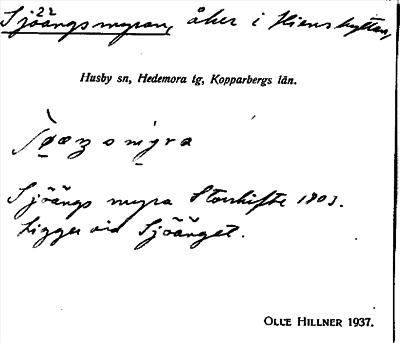 Sjöängsmyran, åker i Hienshyttan,
Husby sn, Hedemora tg, Kopparbergs län.
Sjöängs myra Storskifte 1803.
Ligger vid Sjöänget.
OLLE HILLNER 1937.